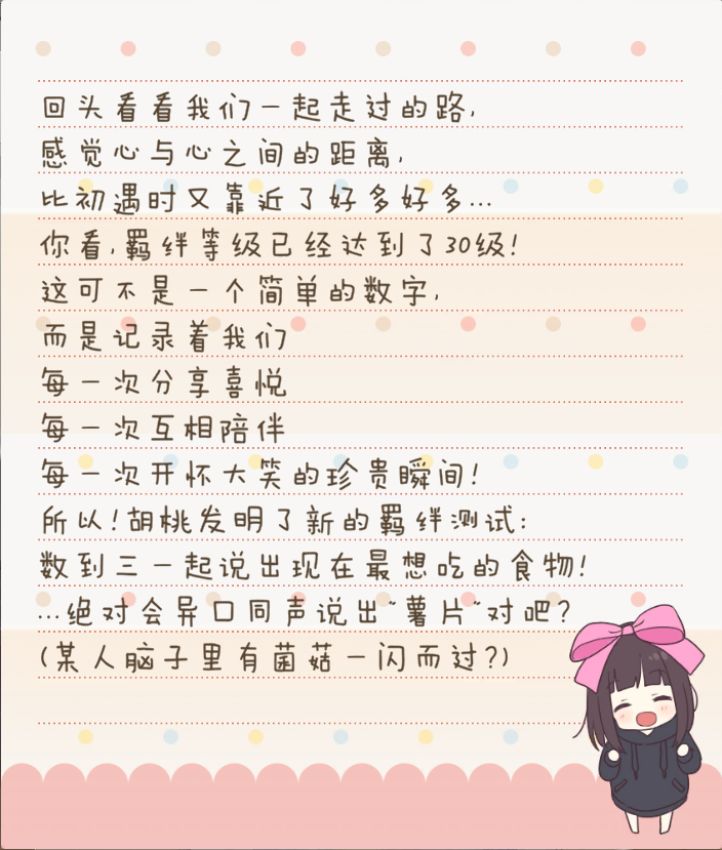 回头看看我们一起走过的路,
感觉心与心之间的距离,
比初遇时又靠近了好多好多...
你看,羁绊等级已经达到了30级!
这可不是一个简单的数字,
而是记录着我们
每一次分享喜悦
每一次互相陪伴
每一次开怀大笑的珍贵瞬间!
所以!胡桃发明了新的羁绊测试:
数到三一起说出现在最想吃的食物!
...绝对会异口同声说出~薯片~对吧?
(某人脑子里有菌菇一闪而过?)